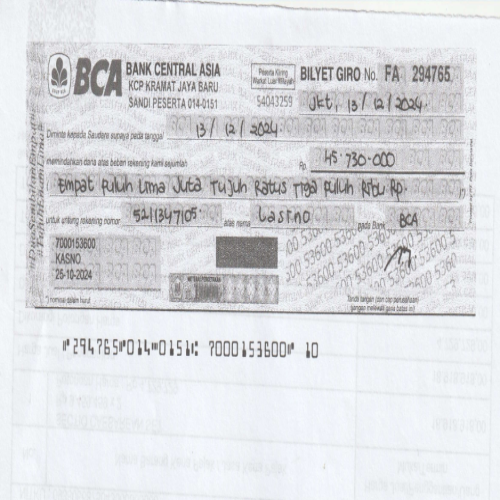 BCA BANK CENTRAL ASIA
KCP KRAMAT JAYA BARU
SANDI PESERTA 014-0151
Peserta Kliring
Warkat Luar Wilayah
54043259
BILYET GIRO No. FA 294765
Jkt, 13/12/2024
Diminta kepada Saudara supaya pada tanggal 13/12/2024
memindahkan dana atas beban rekening kami sejumlah Rp. 45.730.000
Empat puluh Lima Juta Tujuh Ratus Tiga puluh Ribu Rp.
untuk untung rekening nomor 5211347105 atas nama Lastno pada Bank BCA
7000153600
KASNO
25-10-2024
*) nominal dalam huruf
Tanda tangan (dan cap perusahaan)
(jangan melewati garis batas ini)
⑈294765⑈014⑉0151⑆ 7000153600⑈ 10